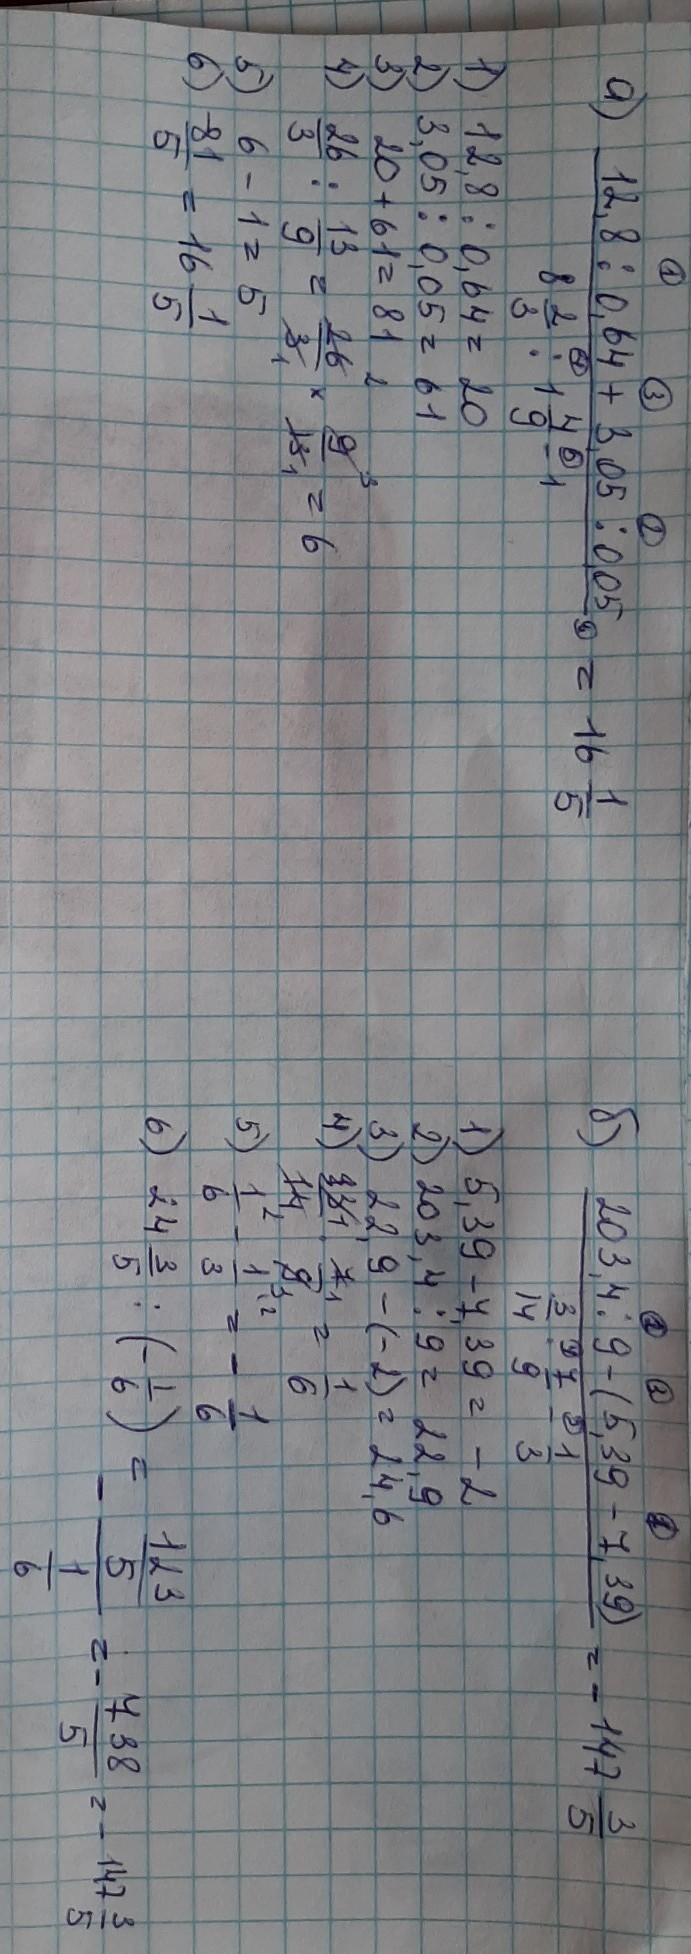 а) 12,8 : 0,64 + 3,05 : 0,05 = 16 1/5
8 2/3 : 1 4/9 - 1
1) 12,8 : 0,64 = 20
2) 3,05 : 0,05 = 61
3) 20 + 61 = 81
4) 26/3 : 13/9 = 26/3 × 9/13 = 6
5) 6 - 1 = 5
6) 81/5 = 16 1/5
б) 203,4 : 9 - (5,39 - 7,39) = - 147 3/5
3/14 · 7/9 - 1/3
1) 5,39 - 7,39 = - 2
2) 203,4 : 9 = 22,9
3) 22,9 - (-2) = 24,6
4) 3/14 · 7/9 = 1/6
5) 1/6 - 1/3 = - 1/6
6) 24 3/5 : (- 1/6) = - 123/5 / 1/6 = - 738/5 = - 147 3/5